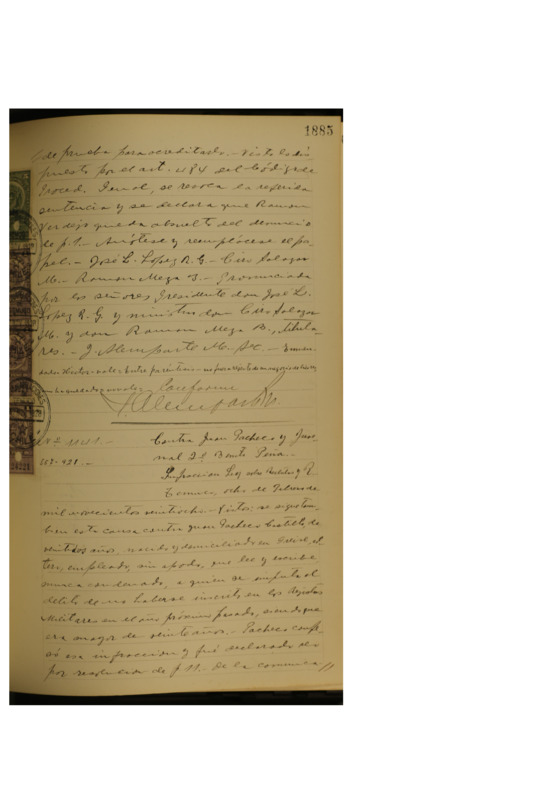 1885
de prueba para acreditarlo. - Visto lo dis
puesto por el art. 484 del Código de
Proced. Penal, se revoca la referida
sentencia y se declara que Ramon
Verdejo queda absuelto del denuncio
de f. 1. - Anótese y reemplácese el pa
pel. - José L. Lopez R. G. - Ciro Salazar
M. - Ramon Mega B. - Pronunciada
por los señores Presidente don José L.
Lopez R. G. y ministros don Ciro Salazar
M. y don Ramon Mega B., titula
res. - J. Alemparte M. - Sec. - Enmen
Conforme
J. Alemparte M.
Contra Juan Pacheco y Juz
nal 2º Benito Peña. -
Infraccion Ley
Temuco, ocho de Febrero de
mil novecientos veintiocho. - Vistos: se
esta causa contra Juan Pacheco Castillo, de
veintidos años, nacido y domiciliado en
tero, empleado, sin apodo, que lee y escribe
nunca condenado, a quien se imputa el
delito de no haberse inscrito en los Rejistros
Militares en el año próximo pasado, siendo que
era mayor de veinte años. - Pacheco confe
só esa infraccion y fué declarado reo
por resolucion de f 11. - de la comunica